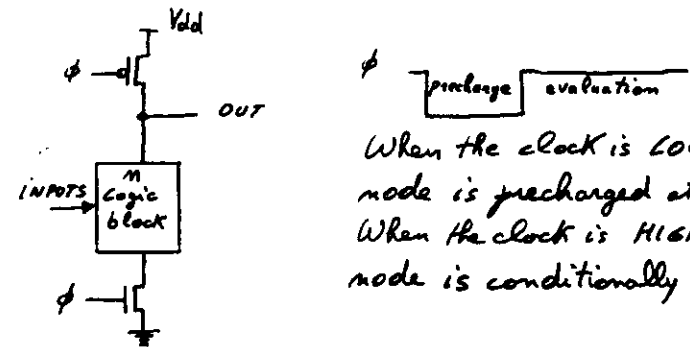 Vdd
φ
OUT
INPUTS
n
Logic
block
φ
φ
precharge evaluation
When the clock is LO
node is precharged at
When the clock is HIGH
node is conditionally